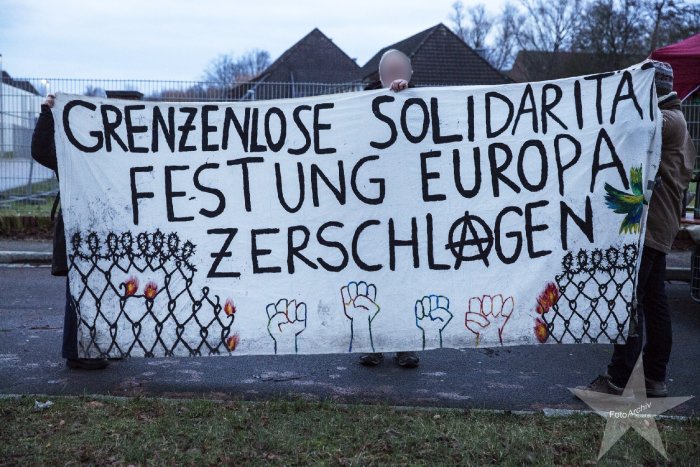 GRENZENLOSE SOLIDARITÄT
FESTUNG EUROPA
ZERSCHLAGEN
FotoArchiv